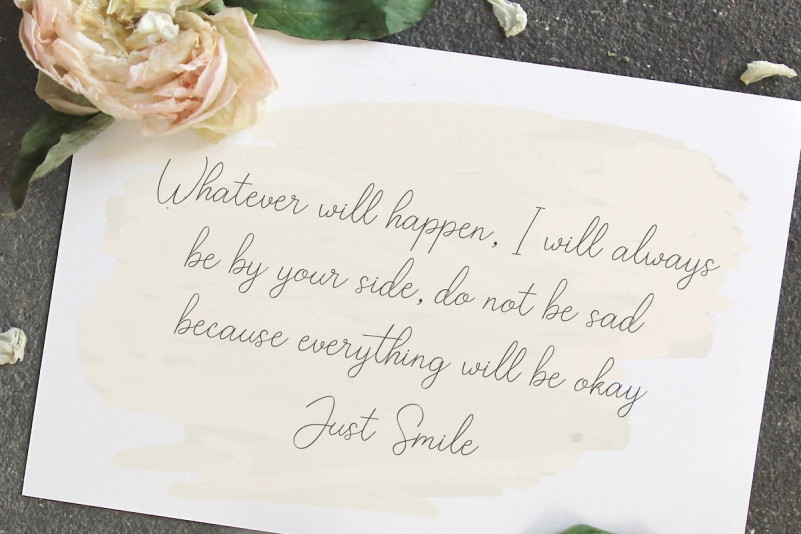 Whatever will happen, I will always
be by your side, do not be sad
because everything will be okay
Just Smile